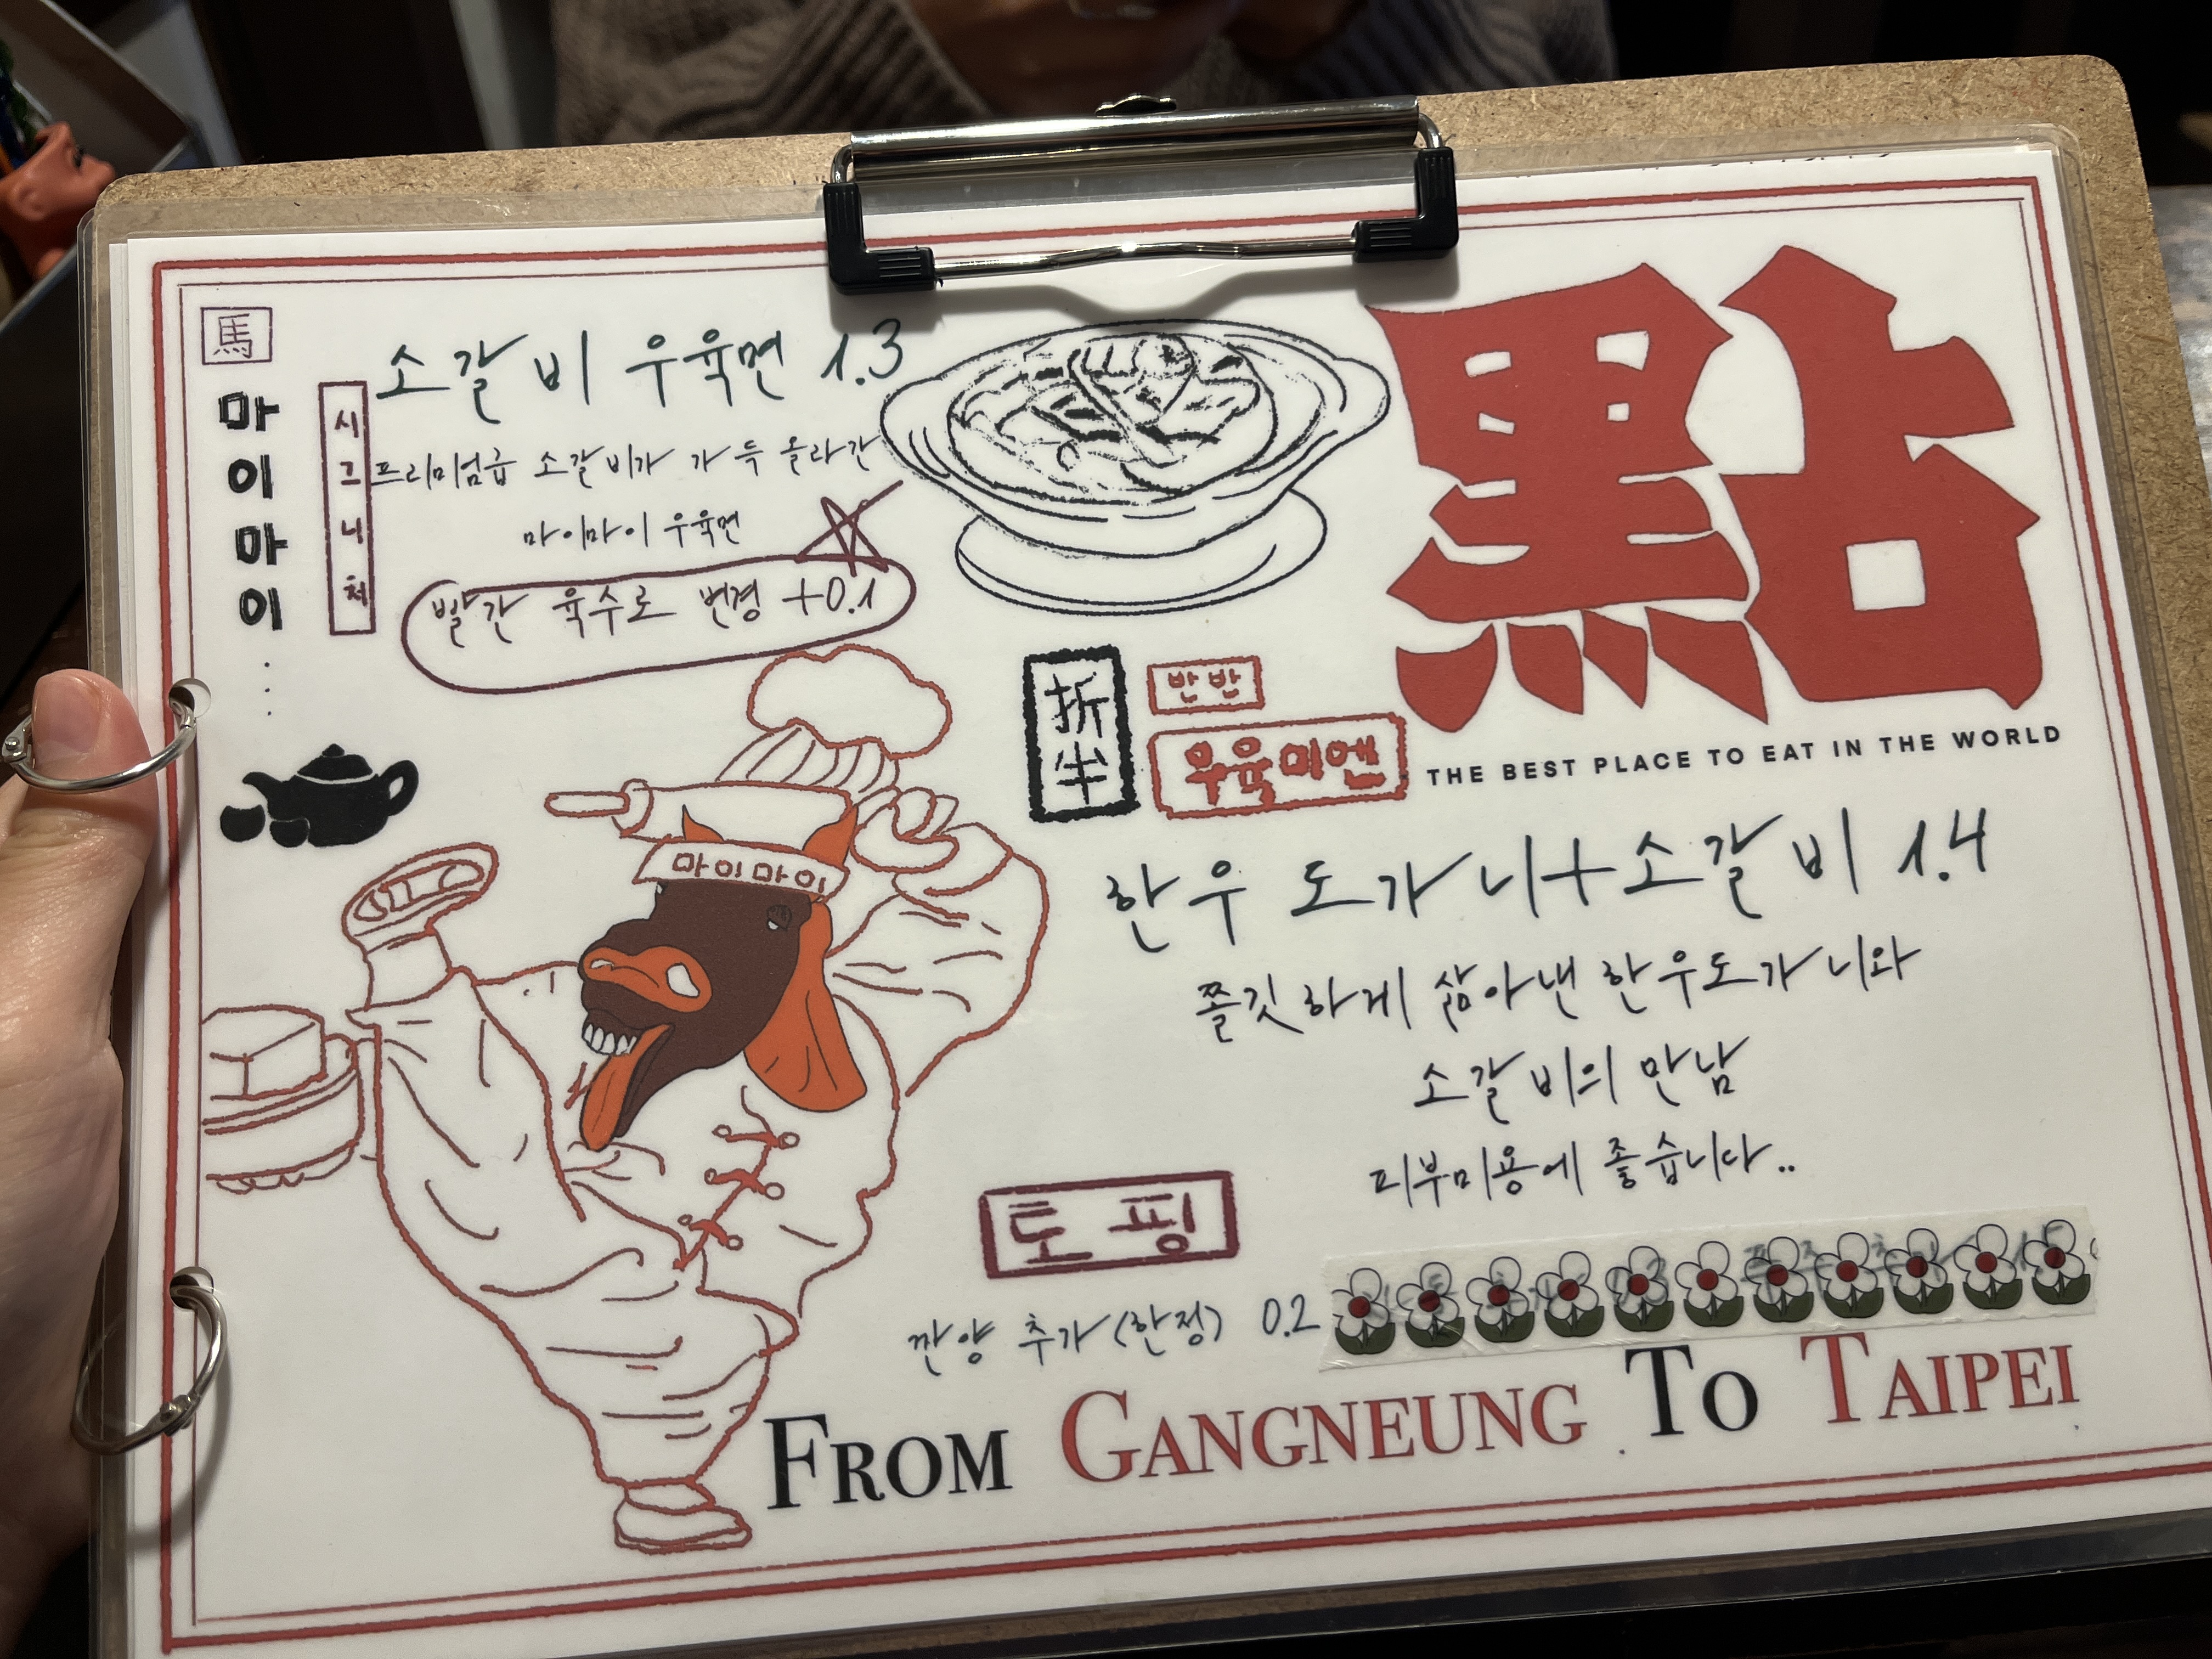 馬
마이마이
시그니처
소갈비 우육면 1.3
프리미엄급 소갈비가 가득 올라간
마이마이 우육면
빨간 육수로 변경 +0.1
點
THE BEST PLACE TO EAT IN THE WORLD
折半
반반
우육미엔
마이마이
한우 도가니+소갈비 1.4
쫄깃하게 삶아낸 한우도가니와
소갈비의 만남
피부미용에 좋습니다..
토핑
깐양 추가(한정) 0.2
FROM GANGNEUNG TO TAIPEI